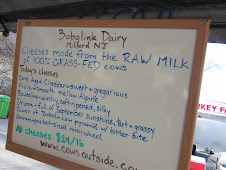 Bobolink Dairy
Milford NJ
Cheeses made from the RAW MILK
of 100% GRASS-FED cows
Today's cheeses
Cave Aged Cheddar sweet + gregarious
Frolic smooth mellow Alpine
soft-ripened, silky
Drumm full of September sunshine, tart + grassy
Tower of Bobolink cow pyramid w/ bitter bite!
mini wheel
All cheeses $24/lb
www.cowsoutside.co
KEY F